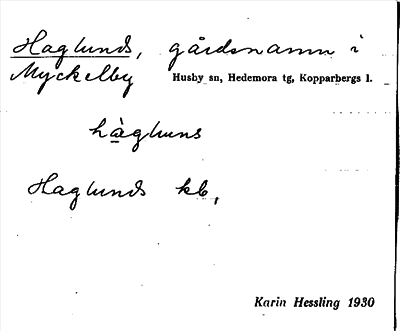 Haglunds, gårdsnamn i
Myckelby Husby sn, Hedemora tg, Kopparbergs l.
hàgluns
Haglunds kb,
Karin Hessling 1930